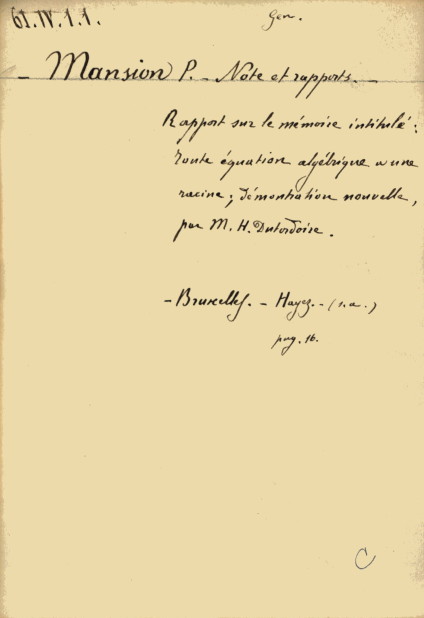 61.IV.1.1.
Gen.
- Mansion P. - Note et rapports. -
Rapport sur le mémoire intitulé:
Toute équation algébrique a une
racine; démontration nouvelle,
par M. H. Dutordoire.
- Bruxelles. - Hayez. - (s.a.)
pag. 16.
C